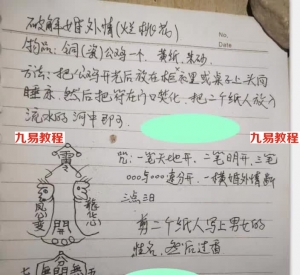 No.
Date
破解婚外情(烂桃花)
物品:铜(瓷)公鸡一个. 黄纸、朱砂.
方法:把公鸡开光后放在柜衣里或桌上头向
睡床. 然后把符在门口焚化. 把二个纸人放入
流水的河中即可
九易教程
九易教程
咒:一笔天地开、二笔明开、三笔
ooo与ooo速分开. 一横婚外情断
三点泪
剪二个纸人写上男女的
姓名. 然后过香
開